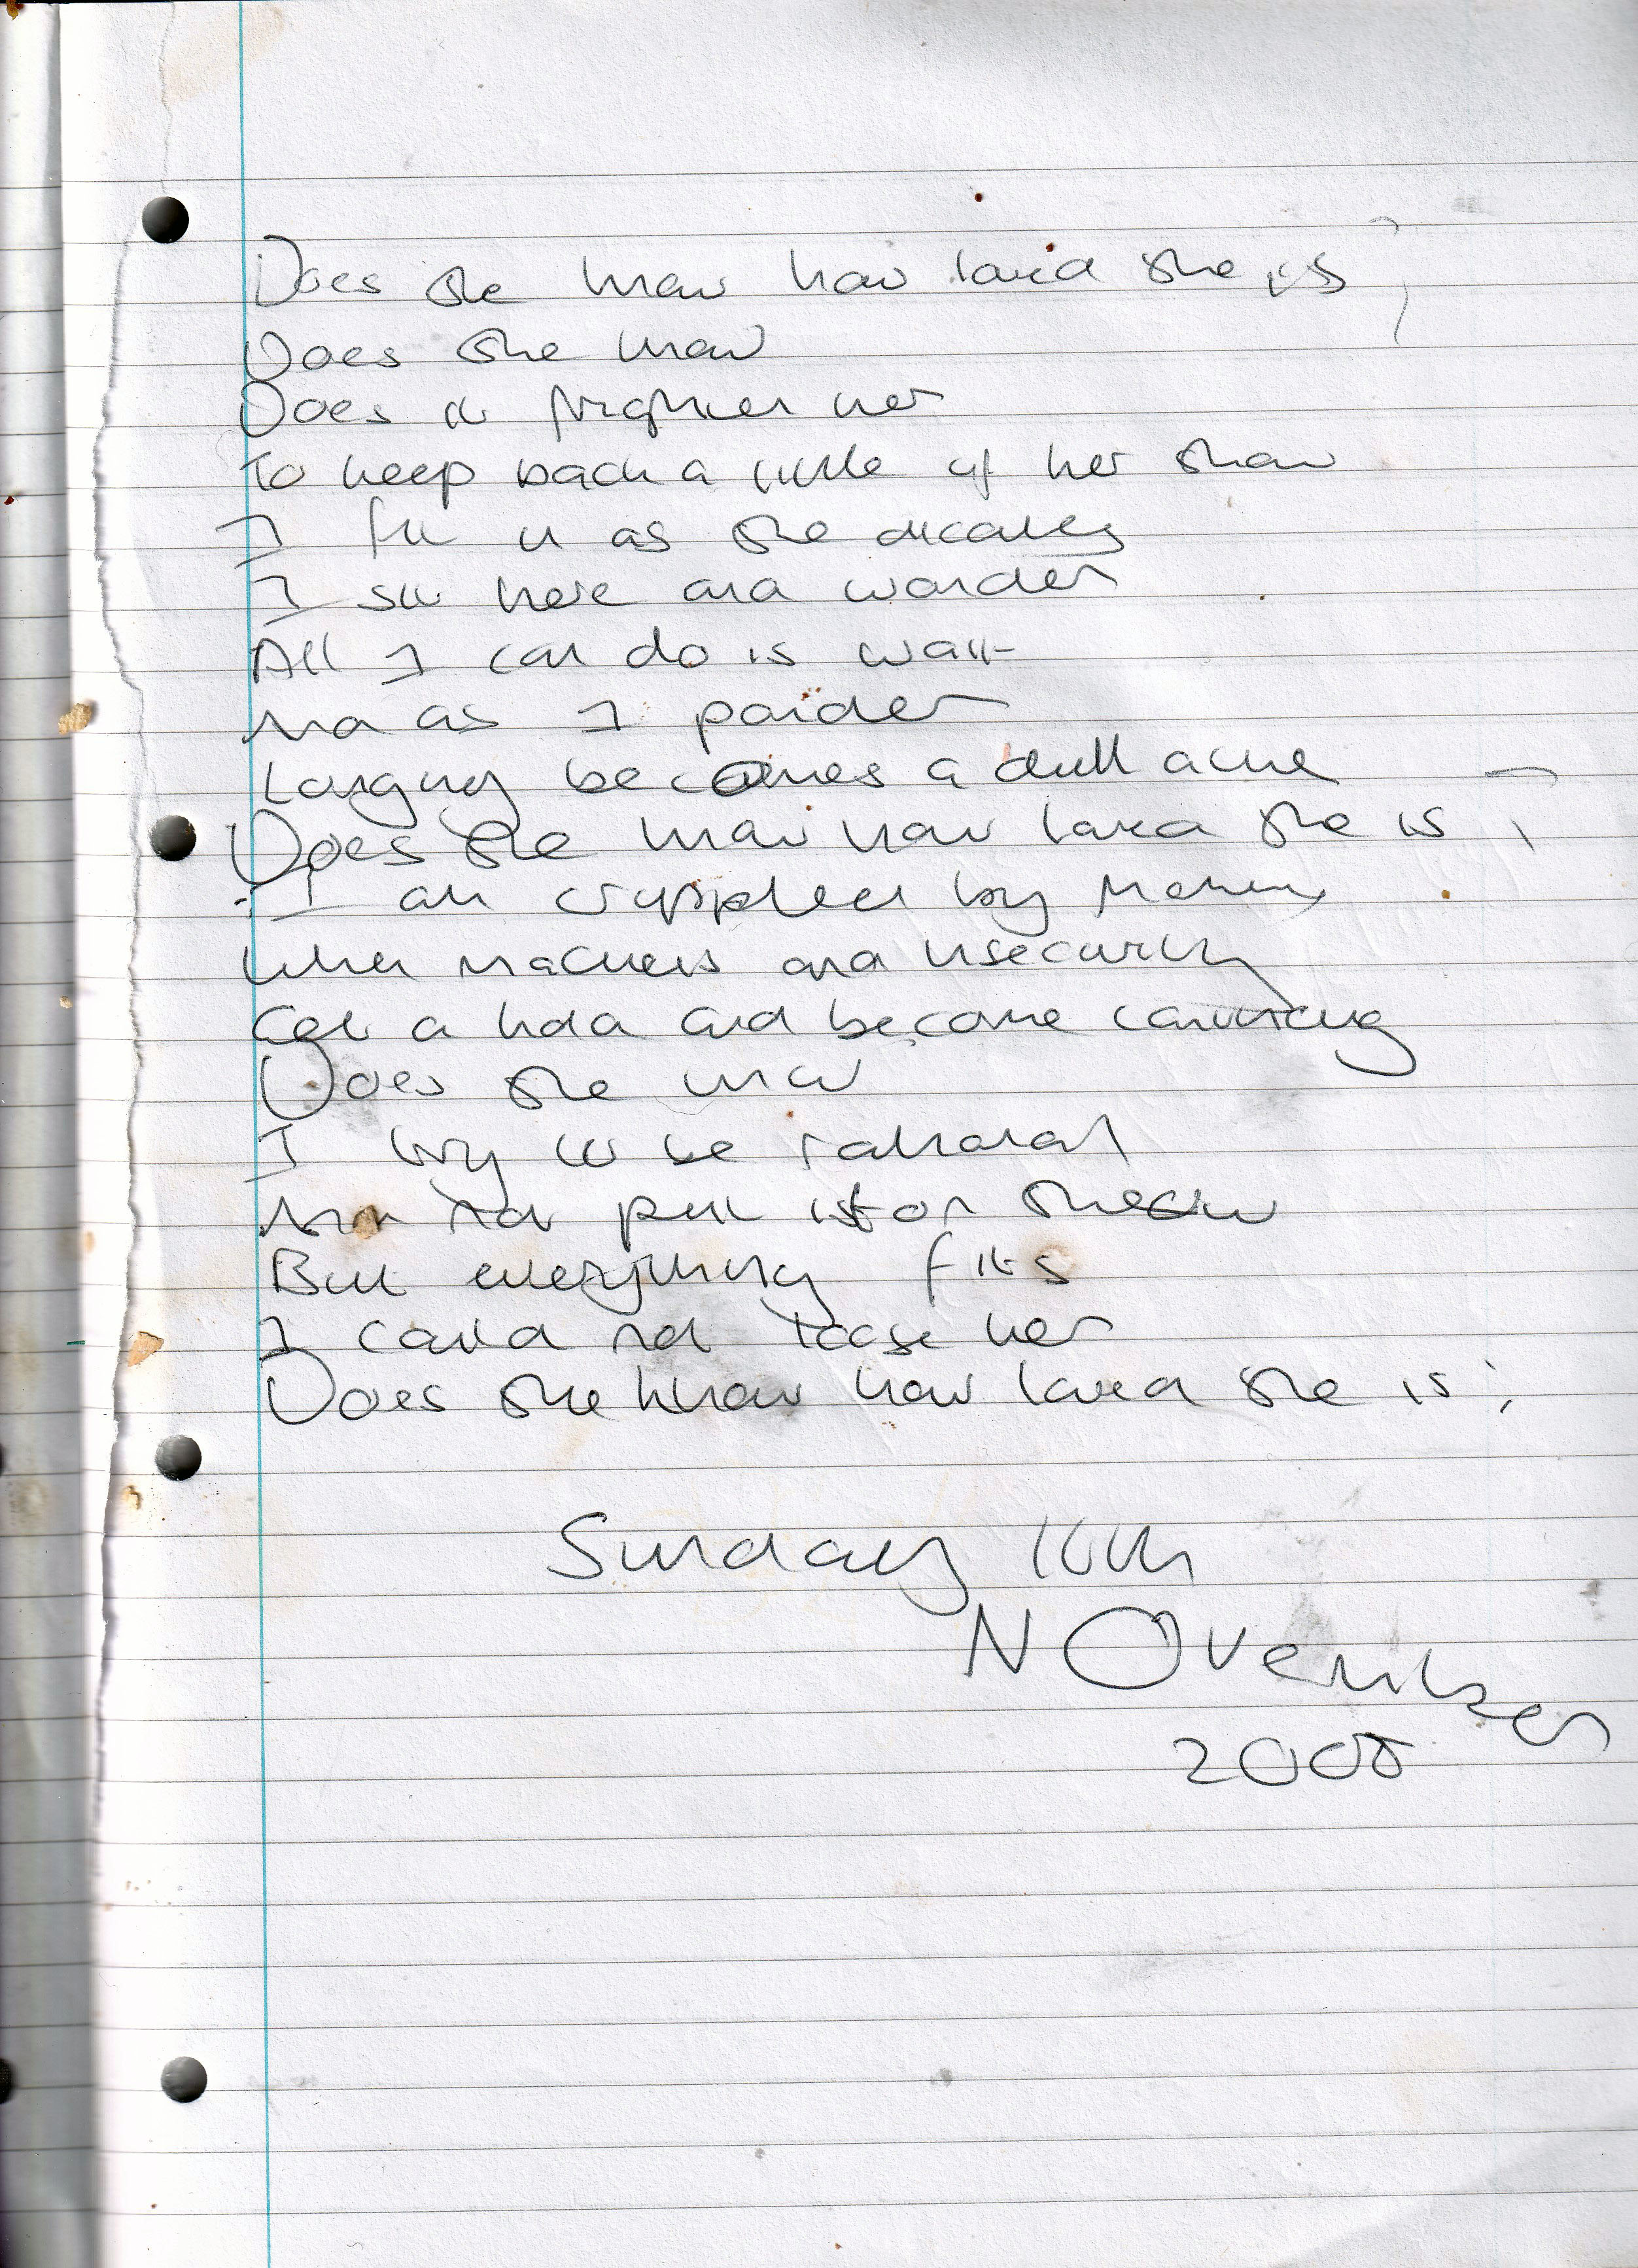 Does she know how loved she is?
Does she know
Does it frighten her
To keep back a little of her show
I felt it as she
I sit here and wonder
All I can do is wait
And as I ponder
Longing becomes a dull ache
Does she know how loved she is?
I am crippled by
When madness and insecurity
Get a hold and become
Does she know
I try to be rational
And not put it on
But everything fits
I could not her
Does she know how loved she is?
Sunday 16th
NOvember
2008